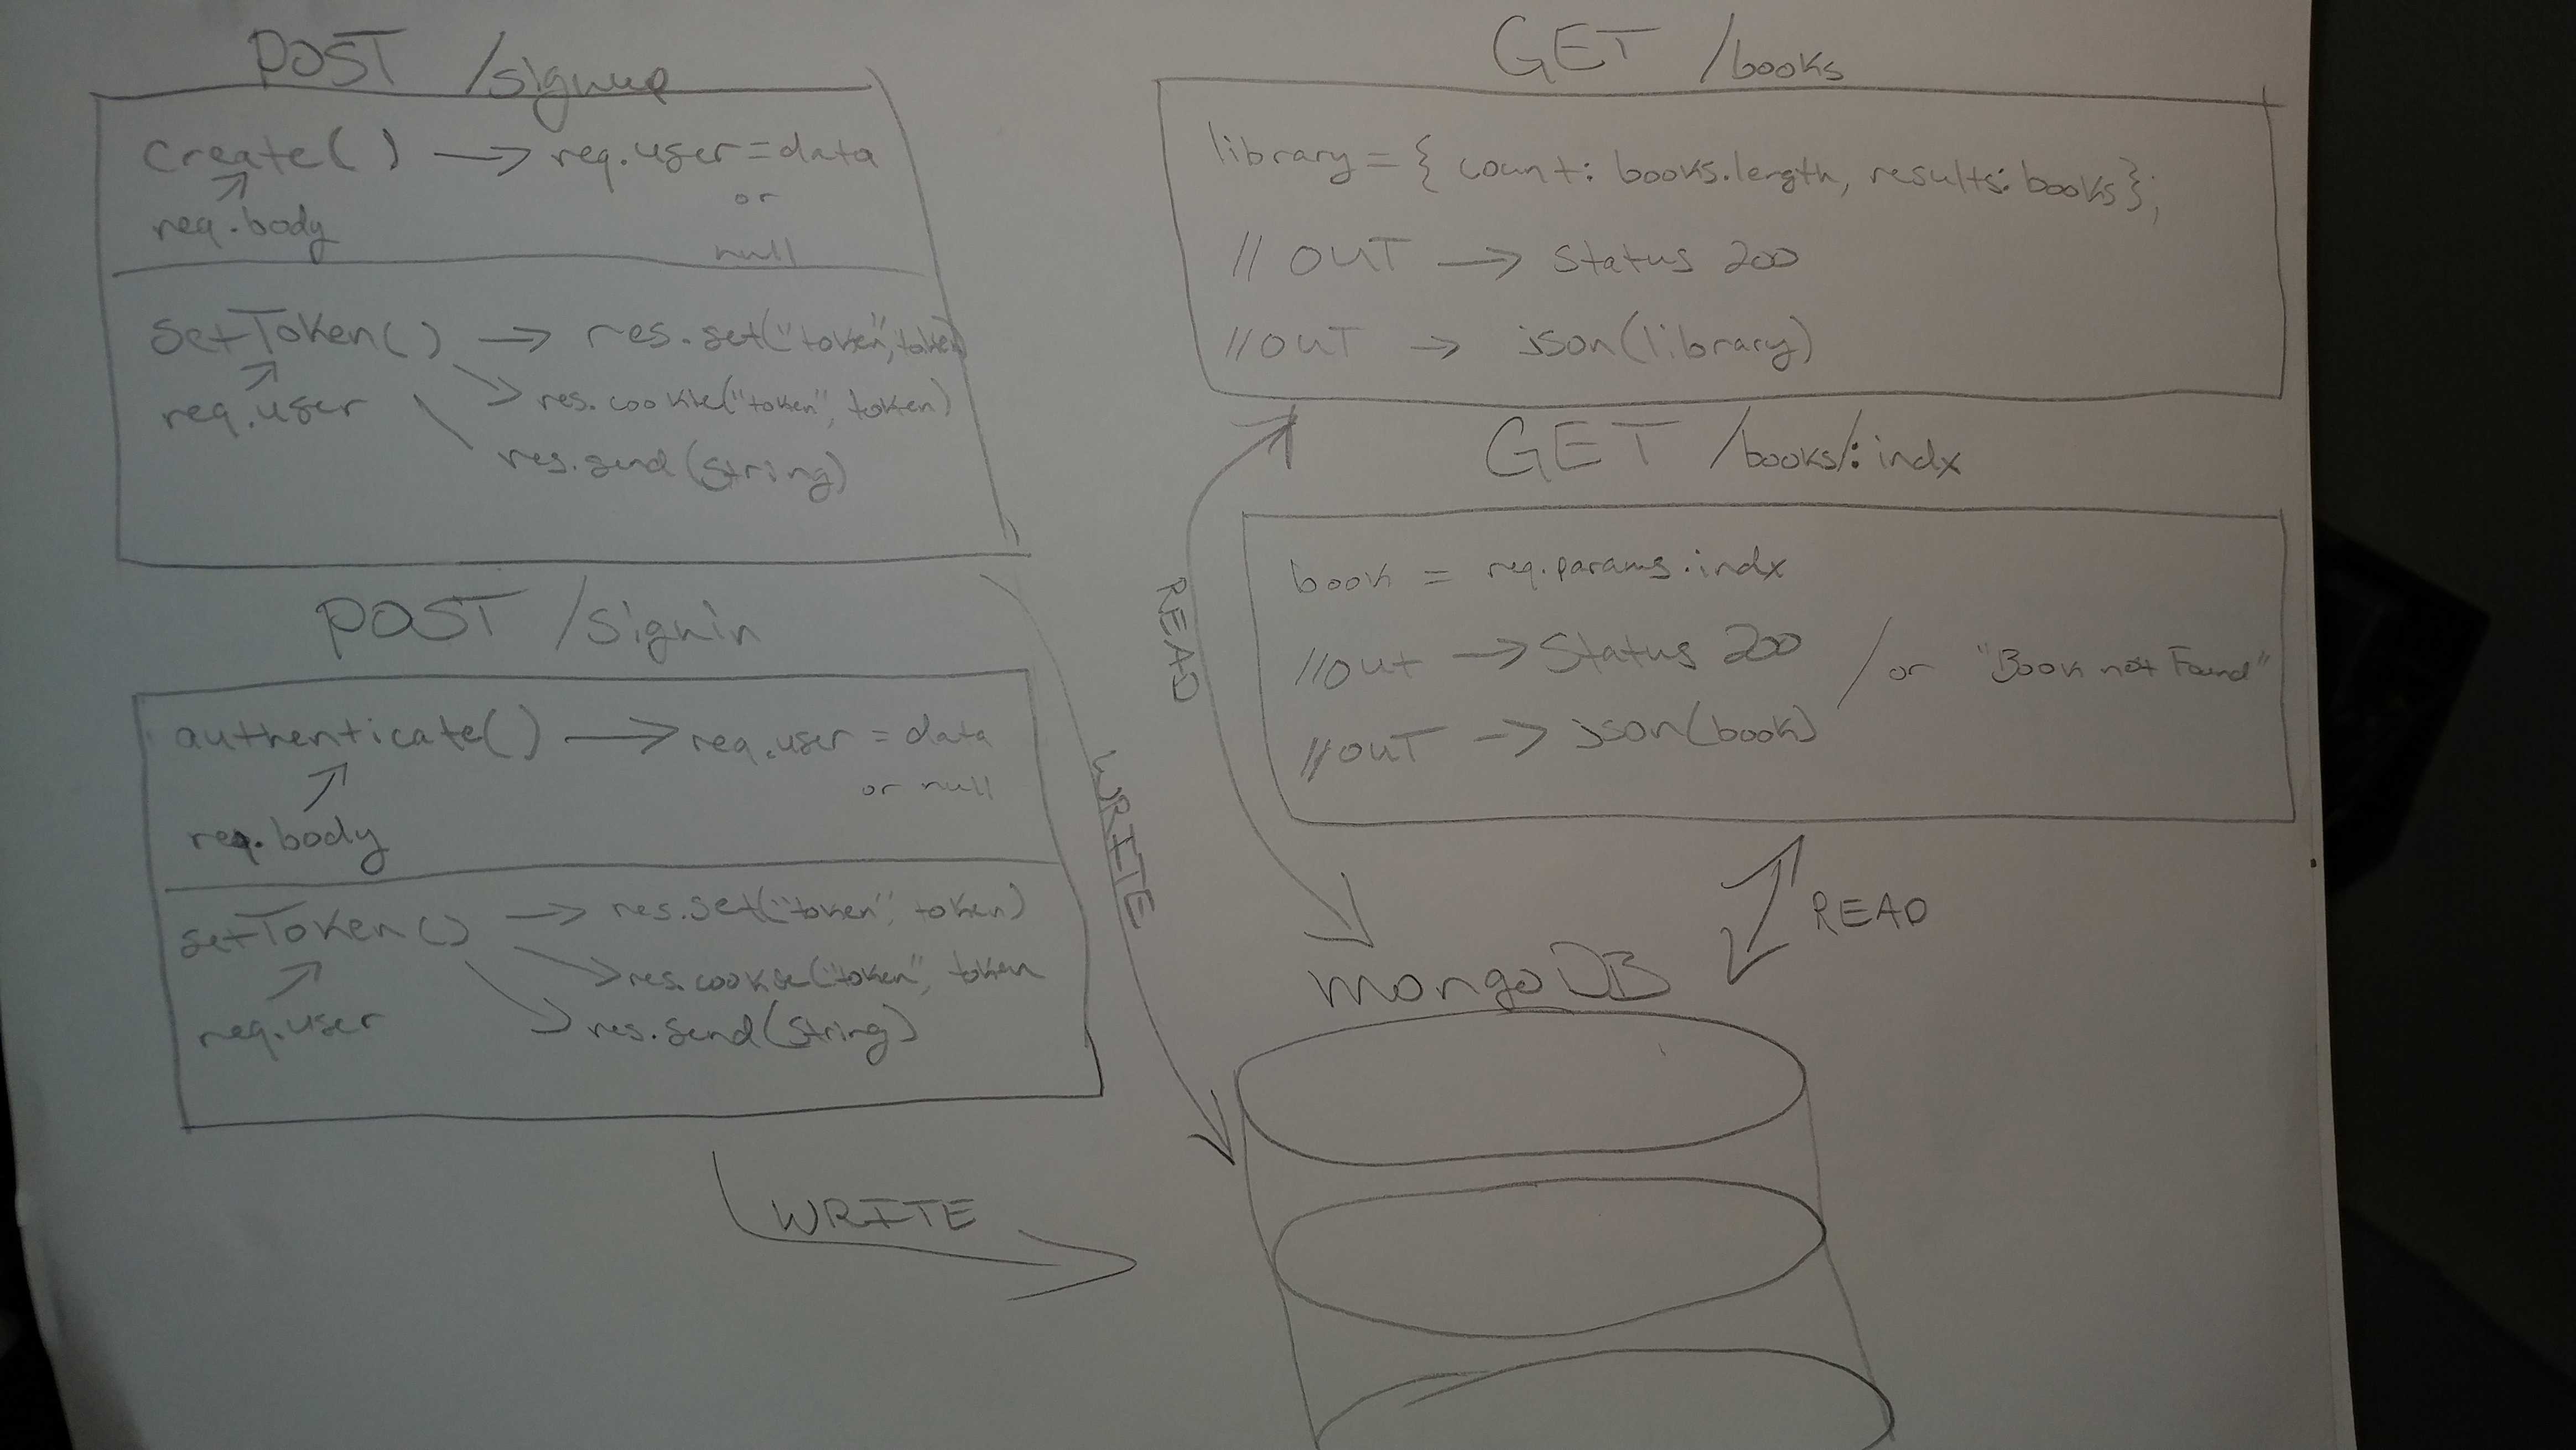 POST /signup
create() → req.user = data
or
req.body
null
setToken() → res.set("token", token)
req.user
res.cookie("token", token)
res.send(string)
POST /signin
authenticate() → req.user = data
or null
req.body
setToken() → res.set("token", token)
res.cookie("token", token
req.user
res.send(string)
WRITE
WRITE
GET /books
library = { count: books.length, results: books};
// OUT → Status 200
// OUT → json(library)
GET /books/:indx
book = req.params.indx
// Out → Status 200 / or "Book not Found"
// OUT → json(book)
READ
READ
mongoDB